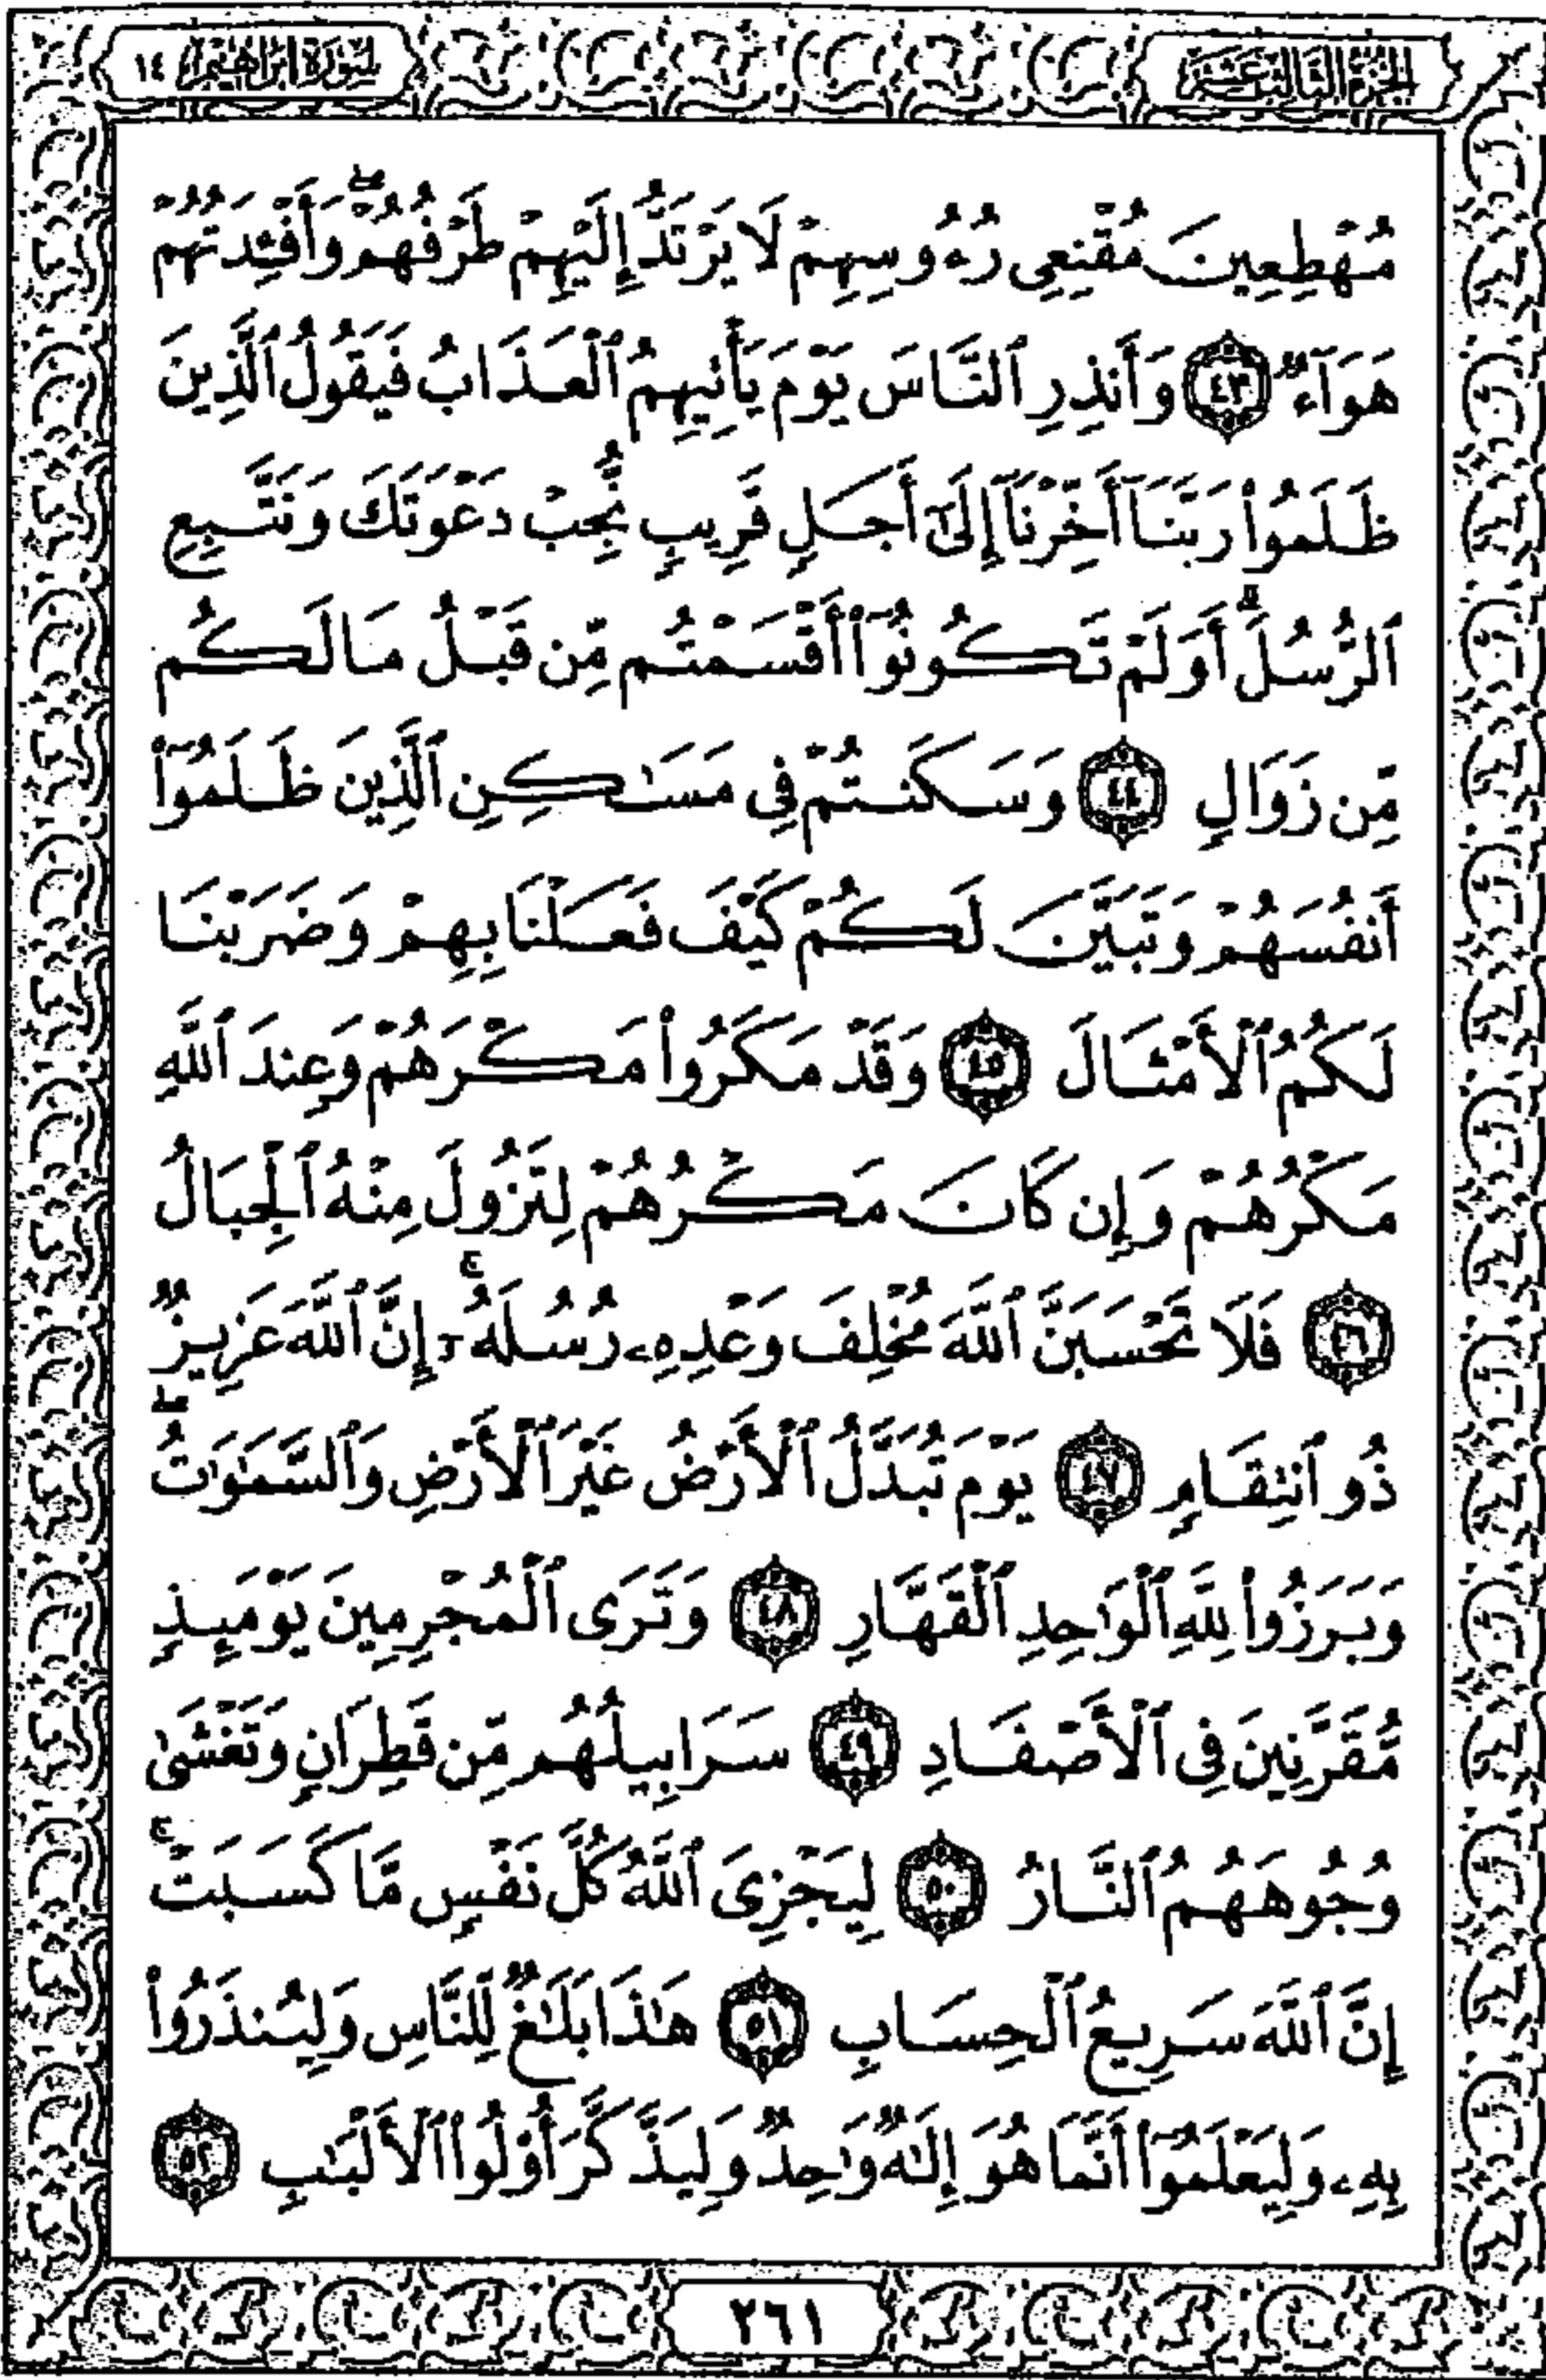 الجزء الثالث عشر
سورة إبراهيم ١٤
مُهْطِعِينَ مُقْنِعِى رُءُوسِهِمْ لَا يَرْتَدُّ إِلَيْهِمْ طَرْفُهُمْ ۖ وَأَفْـِٔدَتُهُمْ
هَوَآءٌ ٤٣ وَأَنذِرِ ٱلنَّاسَ يَوْمَ يَأْتِيهِمُ ٱلْعَذَابُ فَيَقُولُ ٱلَّذِينَ
ظَلَمُوا۟ رَبَّنَآ أَخِّرْنَآ إِلَىٰٓ أَجَلٍ قَرِيبٍ نُّجِبْ دَعْوَتَكَ وَنَتَّبِعِ
ٱلرُّسُلَ ۗ أَوَلَمْ تَكُونُوٓا۟ أَقْسَمْتُم مِّن قَبْلُ مَا لَكُم
مِّن زَوَالٍ ٤٤ وَسَكَنتُمْ فِى مَسَـٰكِنِ ٱلَّذِينَ ظَلَمُوٓا۟
أَنفُسَهُمْ وَتَبَيَّنَ لَكُمْ كَيْفَ فَعَلْنَا بِهِمْ وَضَرَبْنَا
لَكُمُ ٱلْأَمْثَالَ ٤٥ وَقَدْ مَكَرُوا۟ مَكْرَهُمْ وَعِندَ ٱللَّهِ
مَكْرُهُمْ وَإِن كَانَ مَكْرُهُمْ لِتَزُولَ مِنْهُ ٱلْجِبَالُ
٤٦ فَلَا تَحْسَبَنَّ ٱللَّهَ مُخْلِفَ وَعْدِهِۦ رُسُلَهُۥٓ ۚ إِنَّ ٱللَّهَ عَزِيزٌ
ذُو ٱنتِقَامٍ ٤٧ يَوْمَ تُبَدَّلُ ٱلْأَرْضُ غَيْرَ ٱلْأَرْضِ وَٱلسَّمَـٰوَٰتُ ۖ
وَبَرَزُوا۟ لِلَّهِ ٱلْوَٰحِدِ ٱلْقَهَّارِ ٤٨ وَتَرَى ٱلْمُجْرِمِينَ يَوْمَئِذٍ
مُّقَرَّنِينَ فِى ٱلْأَصْفَادِ ٤٩ سَرَابِيلُهُم مِّن قَطِرَانٍ وَتَغْشَىٰ
وُجُوهَهُمُ ٱلنَّارُ ٥٠ لِيَجْزِىَ ٱللَّهُ كُلَّ نَفْسٍ مَّا كَسَبَتْ ۚ
إِنَّ ٱللَّهَ سَرِيعُ ٱلْحِسَابِ ٥١ هَـٰذَا بَلَـٰغٌ لِّلنَّاسِ وَلِيُنذَرُوا۟
بِهِۦ وَلِيَعْلَمُوٓا۟ أَنَّمَا هُوَ إِلَـٰهٌ وَٰحِدٌ وَلِيَذَّكَّرَ أُو۟لُوا۟ ٱلْأَلْبَـٰبِ ٥٢
٢٦١